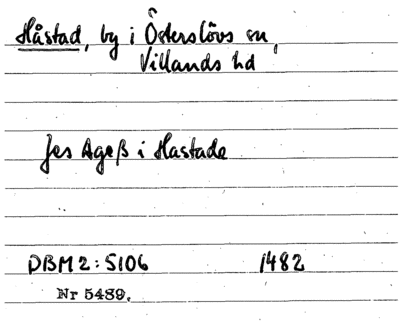 Håstad, by i Österslövs sn,
Villands hd
Jes Ageß i Hastade
DBM 2: S106 1482
Nr 5489.